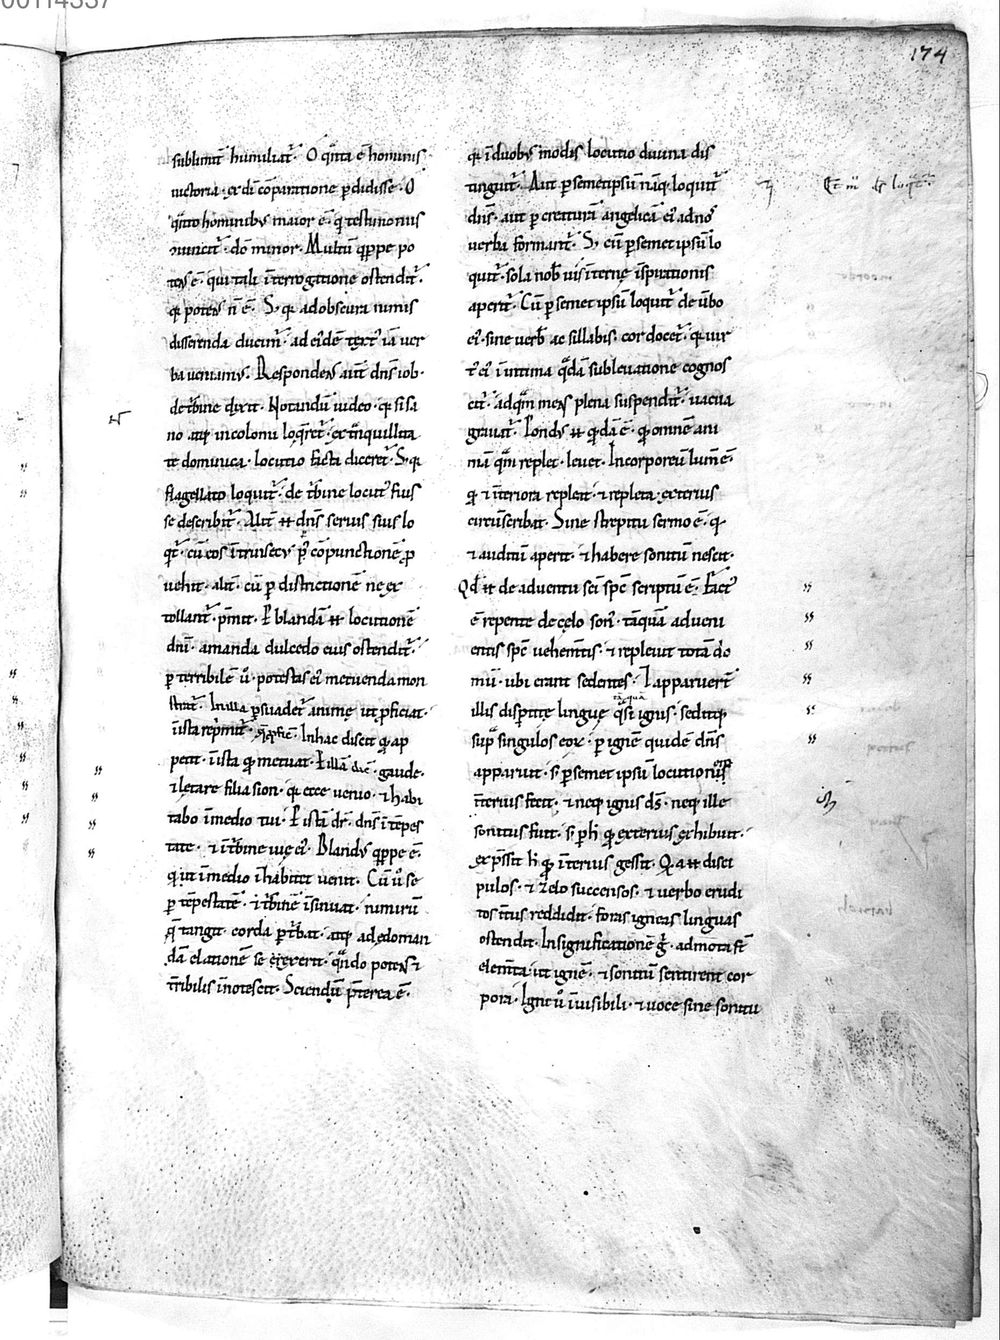 174
sublimit̄ humiliat̄. O q̄nta ē hominis
uictoria · ex di cōparatione p̄didisse · O
q̄nto hominibꝰ maior ē · q̄ testimoniis
uincit̄ · dō minor. Multū q̄ppe po
tens ē · qui tali īterrogatione ostendit̄ ·
qꝛ potens n̄ ē · S; qꝛ ad obscura nimis
disserenda ducim̄ · ad eide text iā uer
ba ueniamꝰ. Respondens aut̄ dn̄s iob ·
de t̄bine dixit · Notandū uideo · qꝛ si sa
no atqꝫ incolomi loq̄ret̄ · ex t̄nquillita
te dominica · locutio facta diceret̄ · S; qꝛ
flagellato loquit̄ · de t̄bine locutꝰ fuis
se describit̄ · Alit̄ ħ dn̄s seruis suis lo
qt̄ · cū eos īt̄nsecꝰ p cōpunctionē p
uehit · alit̄ · cū p districtionē ne ex
tollant̄ · p̄mit · P blandā ħ locutionē
dn̄i · amanda dulcedo eius ostendit̄ ·
p terribilē ů · potestas eiꝰ metuenda mon
strat̄. In illa p̄suadet̄ animę ut p̄ficiat ·
ī ista rep̄mit̄ · q̄ p̄ficit · In hac discit qđ ap
petit · ī ista qđ metuat · P illā dic̄ · gaude ·
⁊ lętare filia sion · qꝛ ecce uenio · ⁊ habi
tabo ī medio tui · P istā dr̄ · dn̄s ī tēpes
tate · ⁊ ī t̄bine uię eiꝰ. Blandꝰ q̄ppe ē ·
q̄ ut ī medio īhabitet uenit. Cū ů se
p tēpestatē · ⁊ t̄binē īsinuat · nimirū
q̄ tangit corda p̄t̄bat · atqꝫ ad edoman
dā elationē se exerit · q̄ndo potens ⁊
t̄ribilis īnotescit. Sciendū p̄terea ē ·
qꝛ ī duobꝰ modis locutio diuina dis
tinguit̄. Aut p semetipsū nāqꝫ loquit̄
dn̄s · aut p creaturā angelicā eiꝰ ad nos
uerba formant̄. S; cū p semet ipsū lo
quit̄ · sola nob uis īternę īspirationis
aperit̄. Cū p semet ipsū loquit̄ de ůbo
eiꝰ · sine uerb ac sillabis · cor docet̄ · qꝛ uir
tꝰ eiꝰ ī intima q̄dā subleuatione cognos
cit̄ · ad quā mens plena suspendit̄ · uacua
grauat̄. Pondꝰ ħ q̄ddā ē · qđ omnē ani
mā quā replet · leuet. Incorporeū lum̄ ē ·
qđ ⁊ īteriora repleat · ⁊ repleta exterius
circūscribat. Sine strepitu sermo ē · q̄
⁊ auditū aperit · ⁊ habere sonitū nescit.
Qđ ħ de aduentu sc̄i sp̄c scriptū ē. Factꝰ
ē repente de cęlo sonꝰ · tāquā adueni
entis sp̄c uehem̄tis · ⁊ repleuit totā do
mū · ubi erant sedentes. ⁊ apparuert̄
illis disp̄titę linguę q̄si ignis · seditqꝫ
tāquā
sup singulos eoꝝ · p ignē quidē dn̄s
apparuit · s; p semet ipsū locutionē
īterius fecit · ⁊ neqꝫ ignis ds̄ · neqꝫ ille
sonitus fuit · s; p h̄ qđ exterius exhibuit ·
exp̄ssit h̄ qđ īterius gessit. Q̄a ħ disci
pulos · ⁊ zelo succensos · ⁊ uerbo erudi
tos īt̄us reddidit · foras igneas linguas
ostendit. In significationē g · admota st̄
elem̄ta · ut ignē · ⁊ sonitū sentirent cor
pora · Igni ů īuisibili · ⁊ uoce sine sonitu